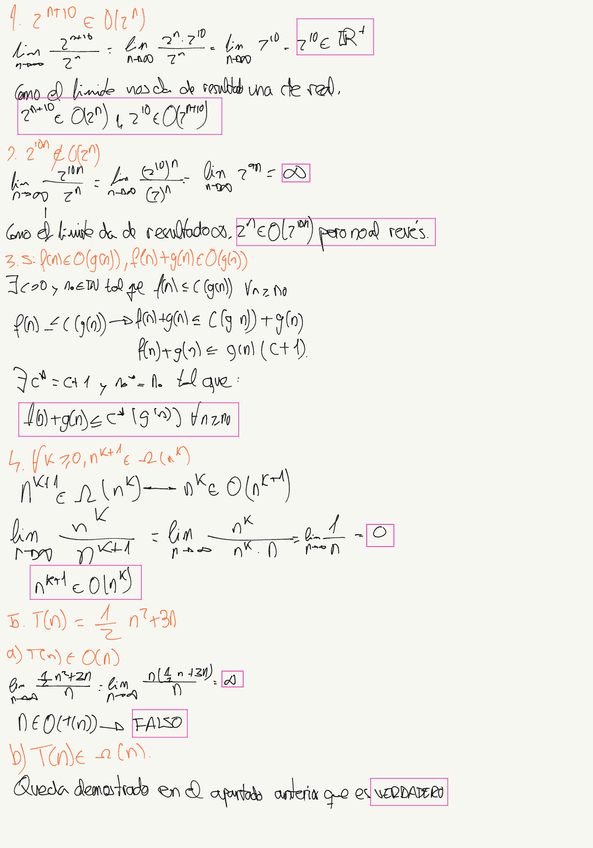 1. 2^{n+10} ∈ O(2^n)
lim_{n→∞} 2^{n+10}/2^n = lim_{n→∞} 2^n · 2^{10}/2^n = lim_{n→∞} 2^{10} = 2^{10} ∈ ℝ^+
Como el limite nos da de resultado una cte real,
2^{n+10} ∈ O(2^n) y 2^{10} ∈ O(2^{n+10})
2. 2^{10n} ∉ O(2^n)
lim_{n→∞} 2^{10n}/2^n = lim_{n→∞} (2^{10})^n/(2)^n = lim_{n→∞} 2^{9n} = ∞
Como el limite da de resultado ∞, 2^n ∈ O(2^{10n}) pero no al revés.
3. Si f(n) ∈ O(g(n)), f(n)+g(n) ∈ O(g(n))
∃ c>0 y n₀∈ℕ tal que f(n) ≤ C(g(n)) ∀n≥n₀
f(n) ≤ C(g(n)) → f(n)+g(n) ≤ C(g(n)) + g(n)
f(n)+g(n) ≤ g(n)(C+1).
∃ c* = c+1 y n₀* = n₀ tal que:
f(n)+g(n) ≤ c*(g(n)) ∀n≥n₀
4. ∀K≥0, n^{K+1} ∈ Ω(n^K)
n^{K+1} ∈ Ω(n^K) ↔ n^K ∈ O(n^{K+1})
lim_{n→∞} n^K/n^{K+1} = lim_{n→∞} n^K/(n^K · n) = lim_{n→∞} 1/n = 0
n^{K+1} ∈ O(n^K)
5. T(n) = 1/2 n² + 3n
a) T(n) ∈ O(n)
lim_{n→∞} (1/2 n² + 3n)/n = lim_{n→∞} n(1/2 n + 3n)/n = ∞
n ∈ O(T(n)) → FALSO
b) T(n) ∈ Ω(n).
Queda demostrado en el apartado anterior que es VERDADERO